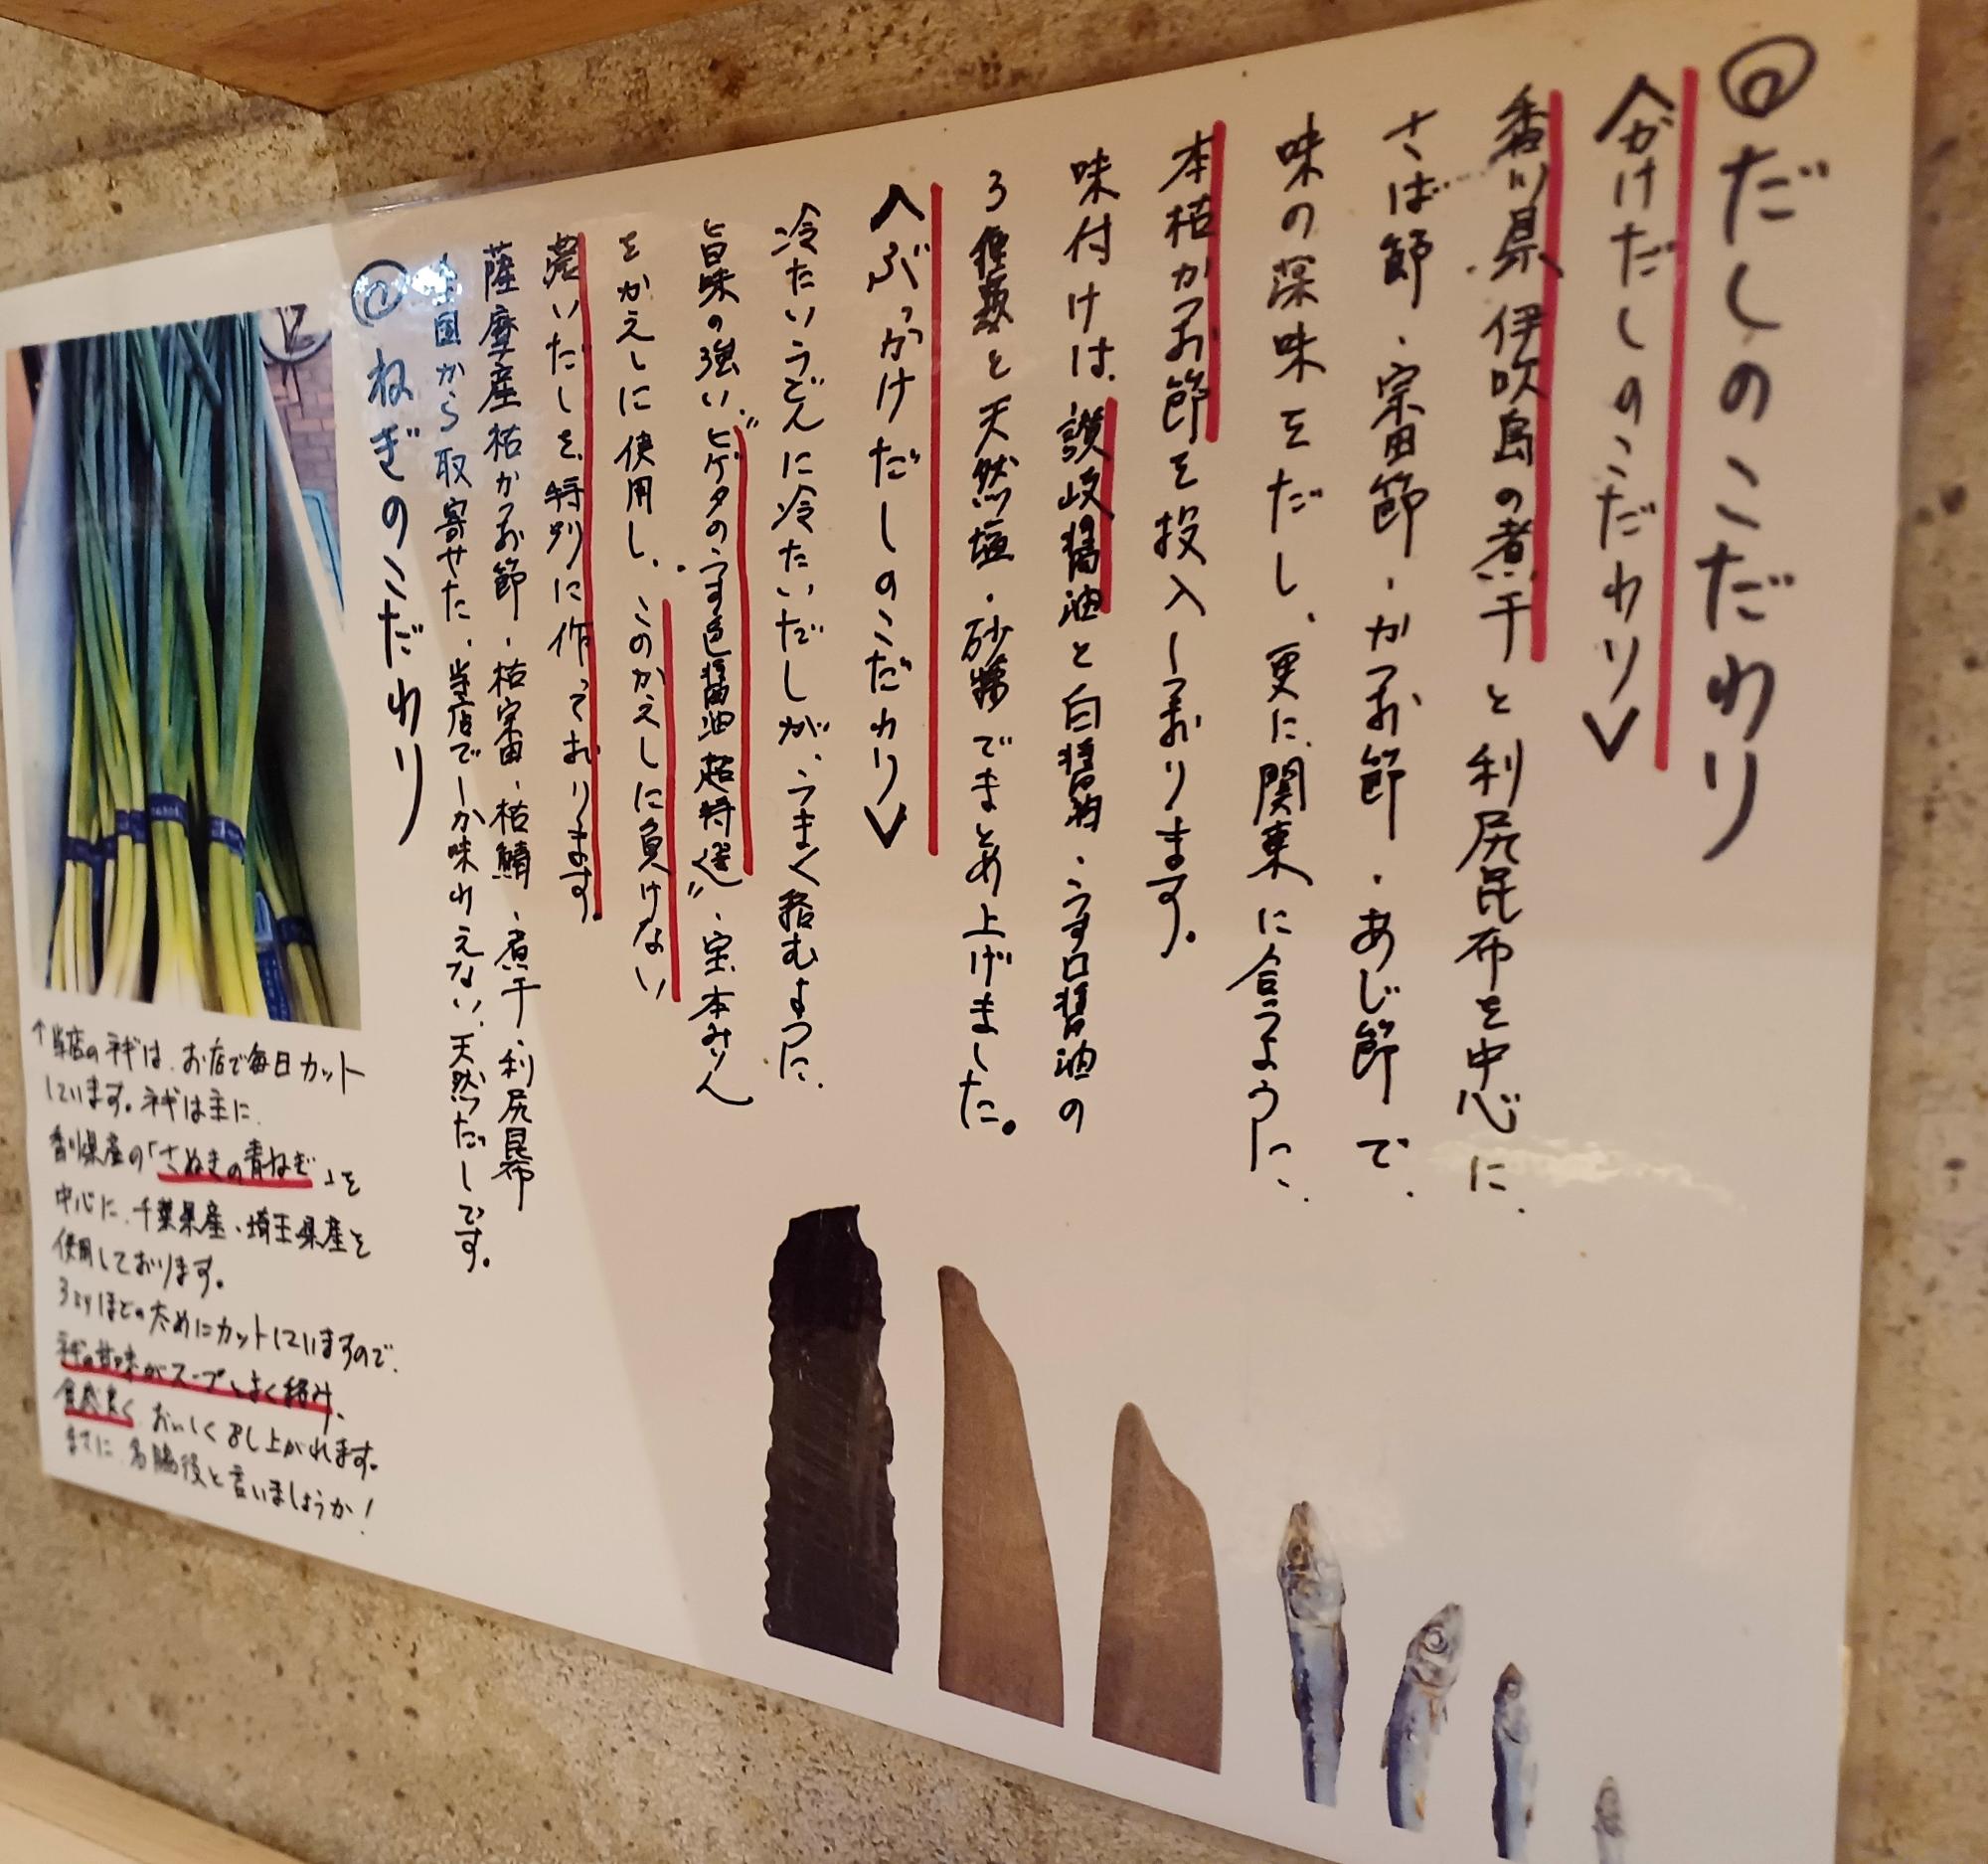 ◎だしのこだわり
<かけだしのこだわり>
香川県 伊吹島の煮干と利尻昆布を中心に、
さば節・宗田節・かつお節・あじ節で、
味の深味をだし、更に関東に合うように、
本枯かつお節を投入しております。
味付けは、讃岐醤油と白醤油・うす口醤油の
3種類と天然塩・砂糖でまとめ上げました。
<ぶっかけだしのこだわり>
冷たいうどんに冷たいだしが、うまく絡むように、
旨味の強い"ヒゲタのうす色醤油 超特選"・宝本みりん
をかえしに使用し、このかえしに負けない
濃いだしを、特別に作っております。
薩摩産枯かつお節・枯宗田・枯鯖・煮干・利尻昆布
全国から取寄せた、当店でしか味わえない、天然だしです。
◎ねぎのこだわり
↑当店のネギは、お店で毎日カット
しています。ネギは主に、
香川県産の「さぬきの青ねぎ」を
中心に、千葉県産、埼玉県産を
使用しております。
3ミリほどの太めにカットしていますので、
ネギの甘味がスープとよく絡み、
食感良く、おいしく召し上がれます。
まさに、名脇役と言いましょうか!